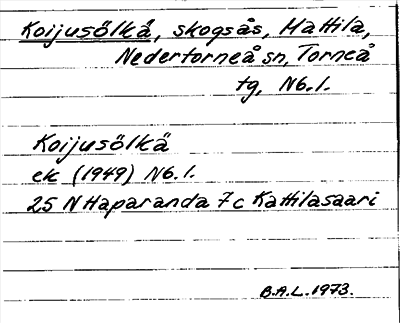 Koijusölkä, skogsås, Mattila,
Nedertorneå sn, Torneå
tg, N6.1.
Koijusölkä
ek (1949) N6.1.
25 N Haparanda 7c Kattilasaari
B.A.L. 1973.